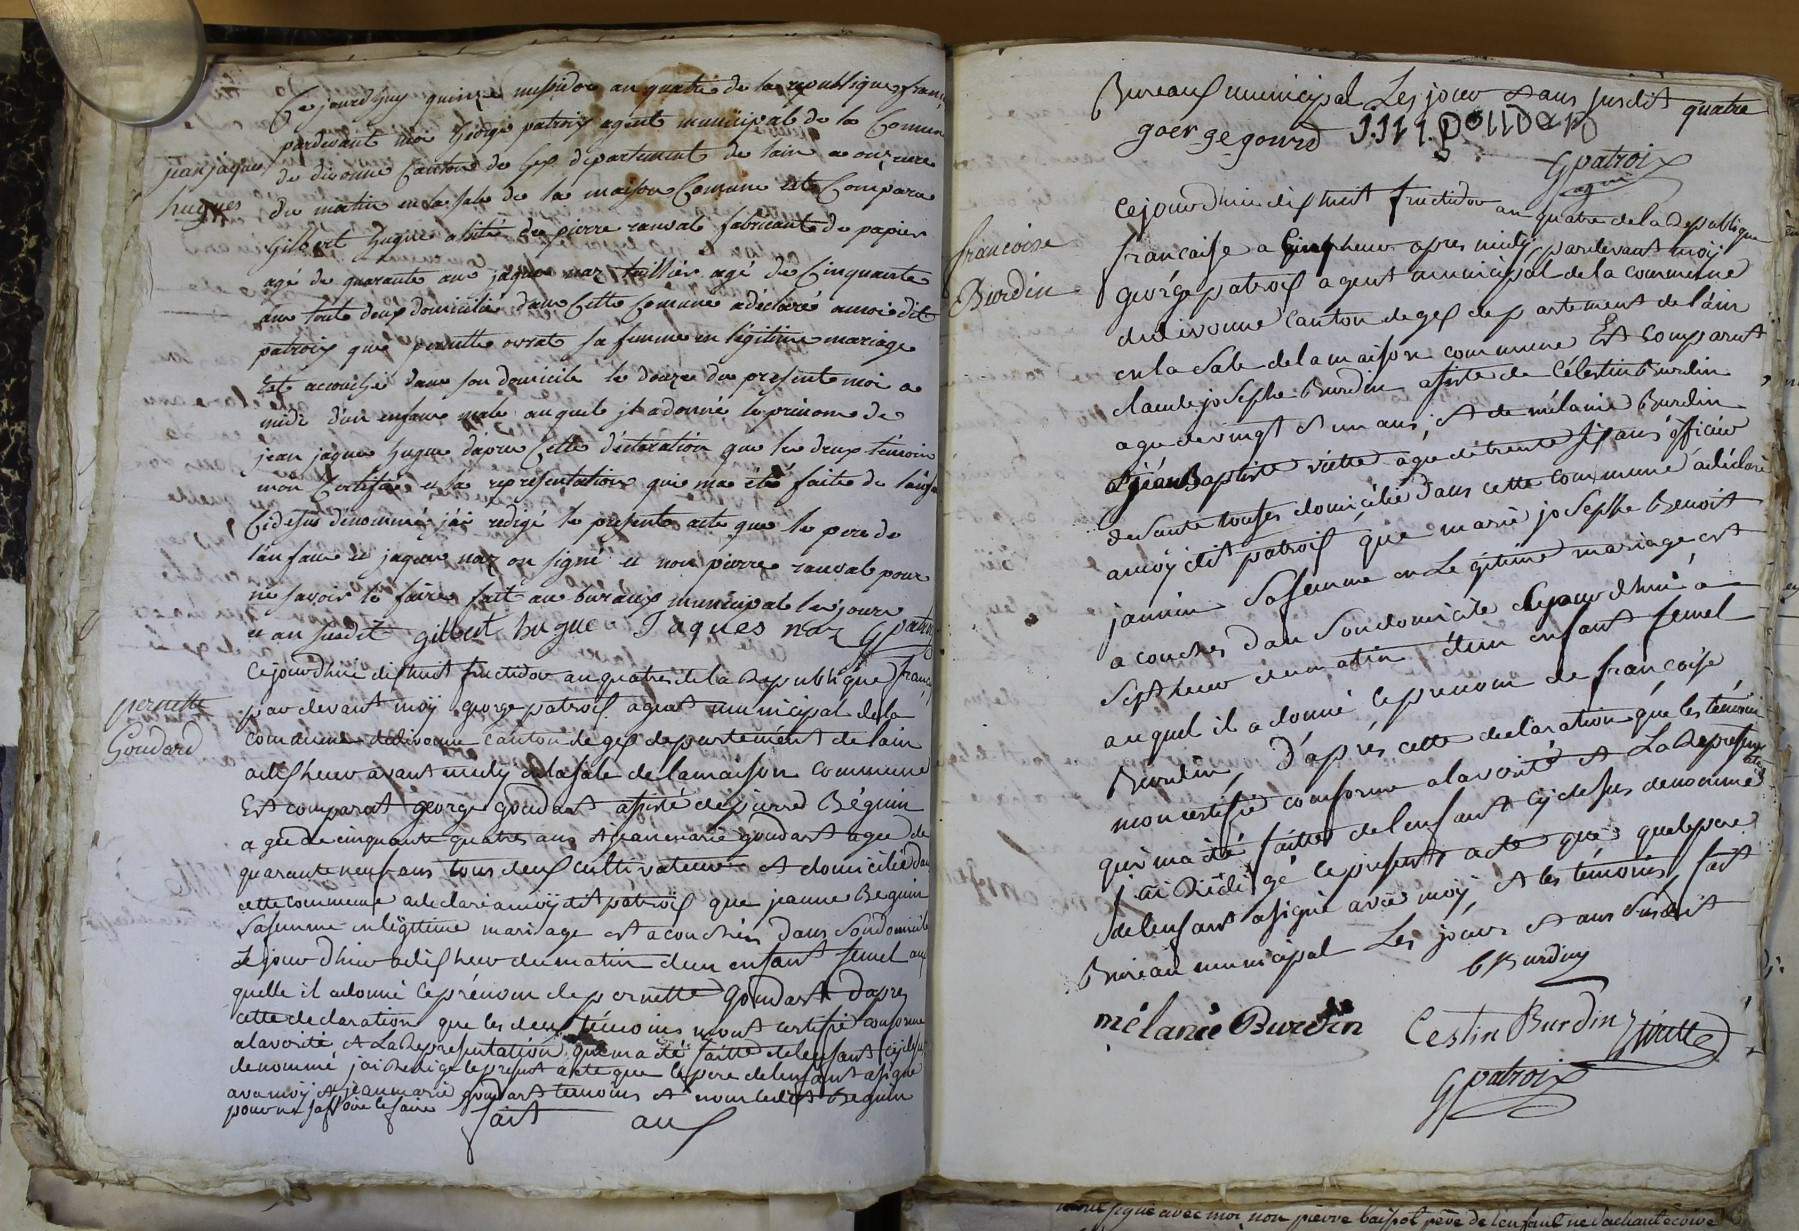 Ce jourdhuy quinze messidor an quatre de la republique franç
pardevant moi George patroix agent municipal de la Comun
de divonne Canton de Gex departement de lain a onze eure
jean jaques
hugues
du matin en la sale de la maison Comune est Comparu
Gilbert hugue asisté de pierre ranvat fabricant de papier
agé de quarante ans jaque naz taillier agé de Cinquante
ans toute deux domicilié dans Cette Comune a déclaré a moi dit
patroix que pernette ovrat sa femme en légitime mariage
Est acouché dans son domicile le douze du present moi a
midi d'un enfans male auquel jl a donné le prénom de
jean jaque hugue d'aprèe Cette déclaration que les deux témoin
mon Certifié et la représentation qui ma été faite de lanfan
Cidesus dénommé j'ai rédigé le present acte que le pere de
lanfans et jaque naz on signé et non pierre ranvat pour
ne savoir le faire fait au buraux municipal les jour
et an susdit gilbert hugue Jaques naz G patroix
Ce jourdhui dishuit fructidor an quatre de la Republique franç
pernette
Goudard
par devant moÿ george patroix agent municipal de la
commune de divonne canton de gex departement de lain
a dix heur avant midy en la sale de la maison commune
Est comparut george goudart assisté de pierre Béguin
agé de cinquante quatre ans et jeanmarie goudart agée de
quarante neuf ans tous deux cultivateur et domicilié dan
cette commune a declaré a moÿ dit patroix que jeanne Beguin
Sa femme en légitime mariage est acouchée dans son domicile
Ce jour dhui a dix heur du matin dun enfant femel au
quelle il a donné le prénom de pernette Goudart dapres
cette declaration que les deux témoins mont certifié conforme
a la vérité et La Représentation qui ma été faitte de lenfant cy desus
denommé jai Redigé le present acte que le pere de lenfant a signé
avec moy et jeanmarie goudart temoins et non ledit Beguin
pour ne savoir le faire fait aux
Bureaux municipal Les jour et ans susdit quatre
goer ge gourd J M goudar
G patroix
agent
Ce jour dhui dix huit fructidor an quatre de la Republique
francoise
Burdin
francaise a Cinq heur apres midy pardevant moÿ
george patroix agent municipal de la commune
de divonne canton de gex departement de l'ain
en la Sale de la maison commune Est comparut
claude josephe Burdin assisté de Célestin Burdin
agé de vingt et un ans, et de mélanie Burdin
et jean Baptiste viette agé de trente six ans officier
de Santé tous domicilié dans cette commune a declaré
a moÿ dit patroix que marie josephe Benoit
jannin Sa femme en Légitime mariage est
acouchée dans son domicile cejourdhui a
Sept heur du matin d'un enfant femel
auquel il a donné le prenom de francoise
Burdin, D'après cette declaration que les témoin
mon certifié conforme a la vérité et La Représent
ation
qui ma été faitte de lenfant cy desus denommé
J'ai Rédigé le present acte que quelepere
de lenfant a signé avec moÿ et les témoins, fait
Bureau municipal Les jour et ans Susdit
C Burdin
mélanie Burdin Celestin Burdin Viette
G patroix
mont signé avec moi non pierre baissot pére de lenfant ne sachant écrire